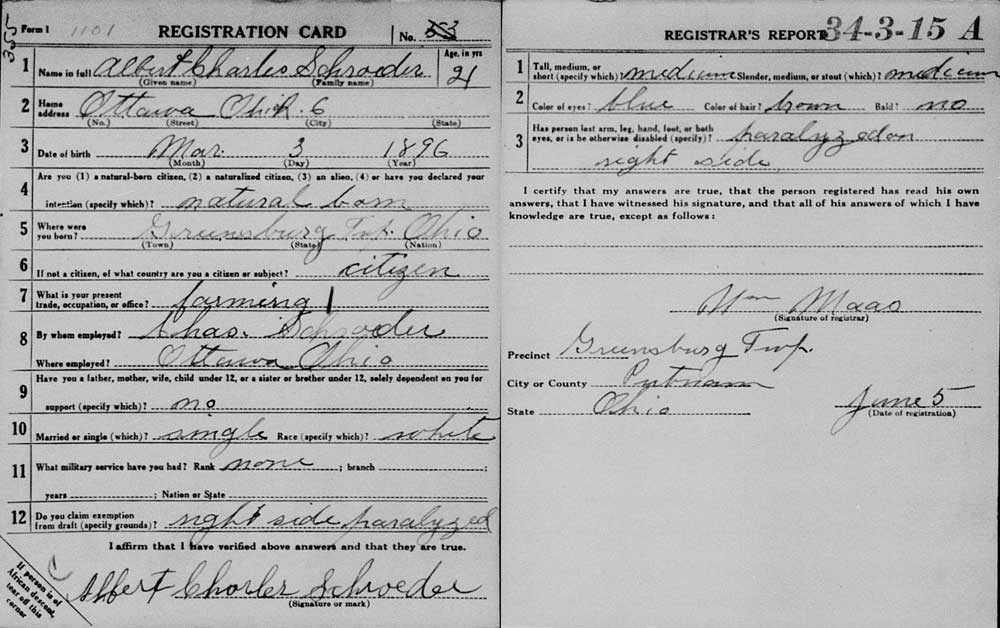 Form 1 1101 REGISTRATION CARD No. 353
1 Name in full Albert Charles Schroeder Age, in yrs 21
(Given name) (Family name)
2 Home address Ottawa Ohio R. 6
(No.) (Street) (City) (State)
3 Date of birth Mar. 3 1896
(Month) (Day) (Year)
4 Are you (1) a natural-born citizen, (2) a naturalized citizen, (3) an alien, (4) or have you declared your
intention (specify which)? natural born
5 Where were you born? Greensburg Twp. Ohio
(Town) (State) (Nation)
6 If not a citizen, of what country are you a citizen or subject? citizen
7 What is your present trade, occupation, or office? farming
8 By whom employed? Chas. Schroeder
Where employed? Ottawa Ohio
9 Have you a father, mother, wife, child under 12, or a sister or brother under 12, solely dependent on you for
support (specify which)? no
10 Married or single (which)? single Race (specify which)? white
11 What military service have you had? Rank none ; branch ;
years ; Nation or State
12 Do you claim exemption from draft (specify grounds)? right side paralyzed
I affirm that I have verified above answers and that they are true.
Albert Charles Schroeder
(Signature or mark)
If person is of
African descent,
tear off this
corner
REGISTRAR'S REPORT 34-3-15 A
1 Tall, medium, or short (specify which)? medium Slender, medium, or stout (which)? medium
2 Color of eyes? blue Color of hair? brown Bald? no
3 Has person lost arm, leg, hand, foot, or both
eyes, or is he otherwise disabled (specify)? paralyzed on
right side
I certify that my answers are true, that the person registered has read his own
answers, that I have witnessed his signature, and that all of his answers of which I have
knowledge are true, except as follows:
Wm Maas
(Signature of registrar)
Precinct Greensburg Twp.
City or County Putnam
State Ohio June 5
(Date of registration)